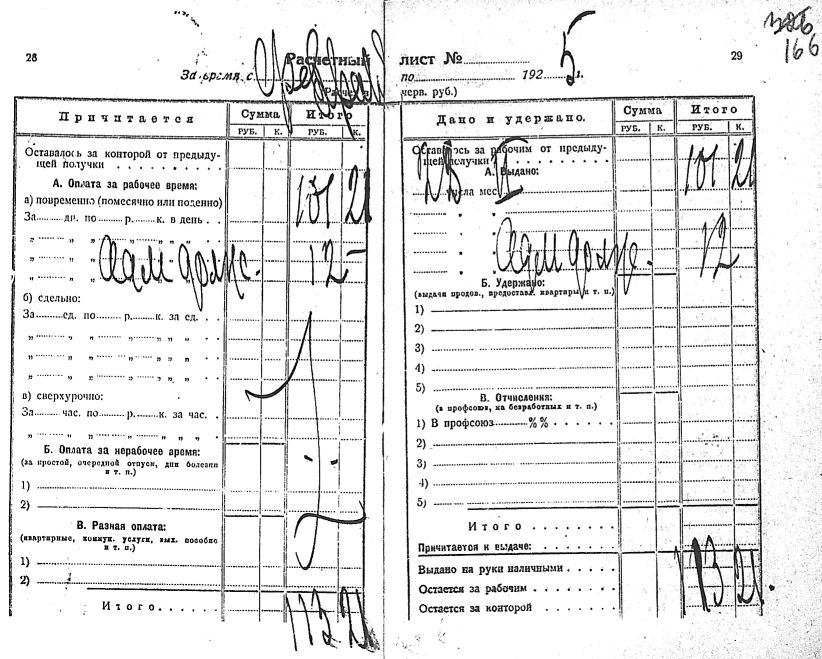 28
Расчетный
За время с
Причитается
Сумма
Итого
РУБ. К. РУБ. К.
Оставалось за конторой от предыду-
щей получки . . . . . . . .
А. Оплата за рабочее время:
101 21
а) повременно (помесячно или поденно)
За......дн. по......р......к. в день . .
" " " 12 —
" " "
б) сдельно:
За......ед. по......р......к. за ед. . .
" " " " "
" " " " "
" " " " "
в) сверхурочно:
За......час. по......р......к. за час. . .
" " " " "
Б. Оплата за нерабочее время:
(за простой, очередной отпуск, дни болезни
и т. п.)
1)
2)
В. Разная оплата:
(квартирные, коммун. услуги, вых. пособие
и т. п.)
1)
2)
Итого . . . . . .
113 21
326
166
лист №
29
по 1925 г.
черв. руб.)
Дано и удержано.
Сумма
Итого
РУБ. К. РУБ. К.
Оставалось за рабочим от предыду-
щей получки . . . . . . . .
101 21
А. Выдано:
числа мес.
" "
" "
12
" "
" "
Б. Удержано:
(выдачи продов., предоставл. квартиры и т. п.)
1)
2)
3)
4)
5)
В. Отчисления:
(в профсоюз, на безработных и т. п.)
1) В профсоюз........%% . . . . . .
2)
3)
4)
5)
Итого . . . . . . . .
Причитается к выдаче:
Выдано на руки наличными . . . . .
113 21.
Остается за рабочим . . . . . . . .
Остается за конторой . . . . . . .